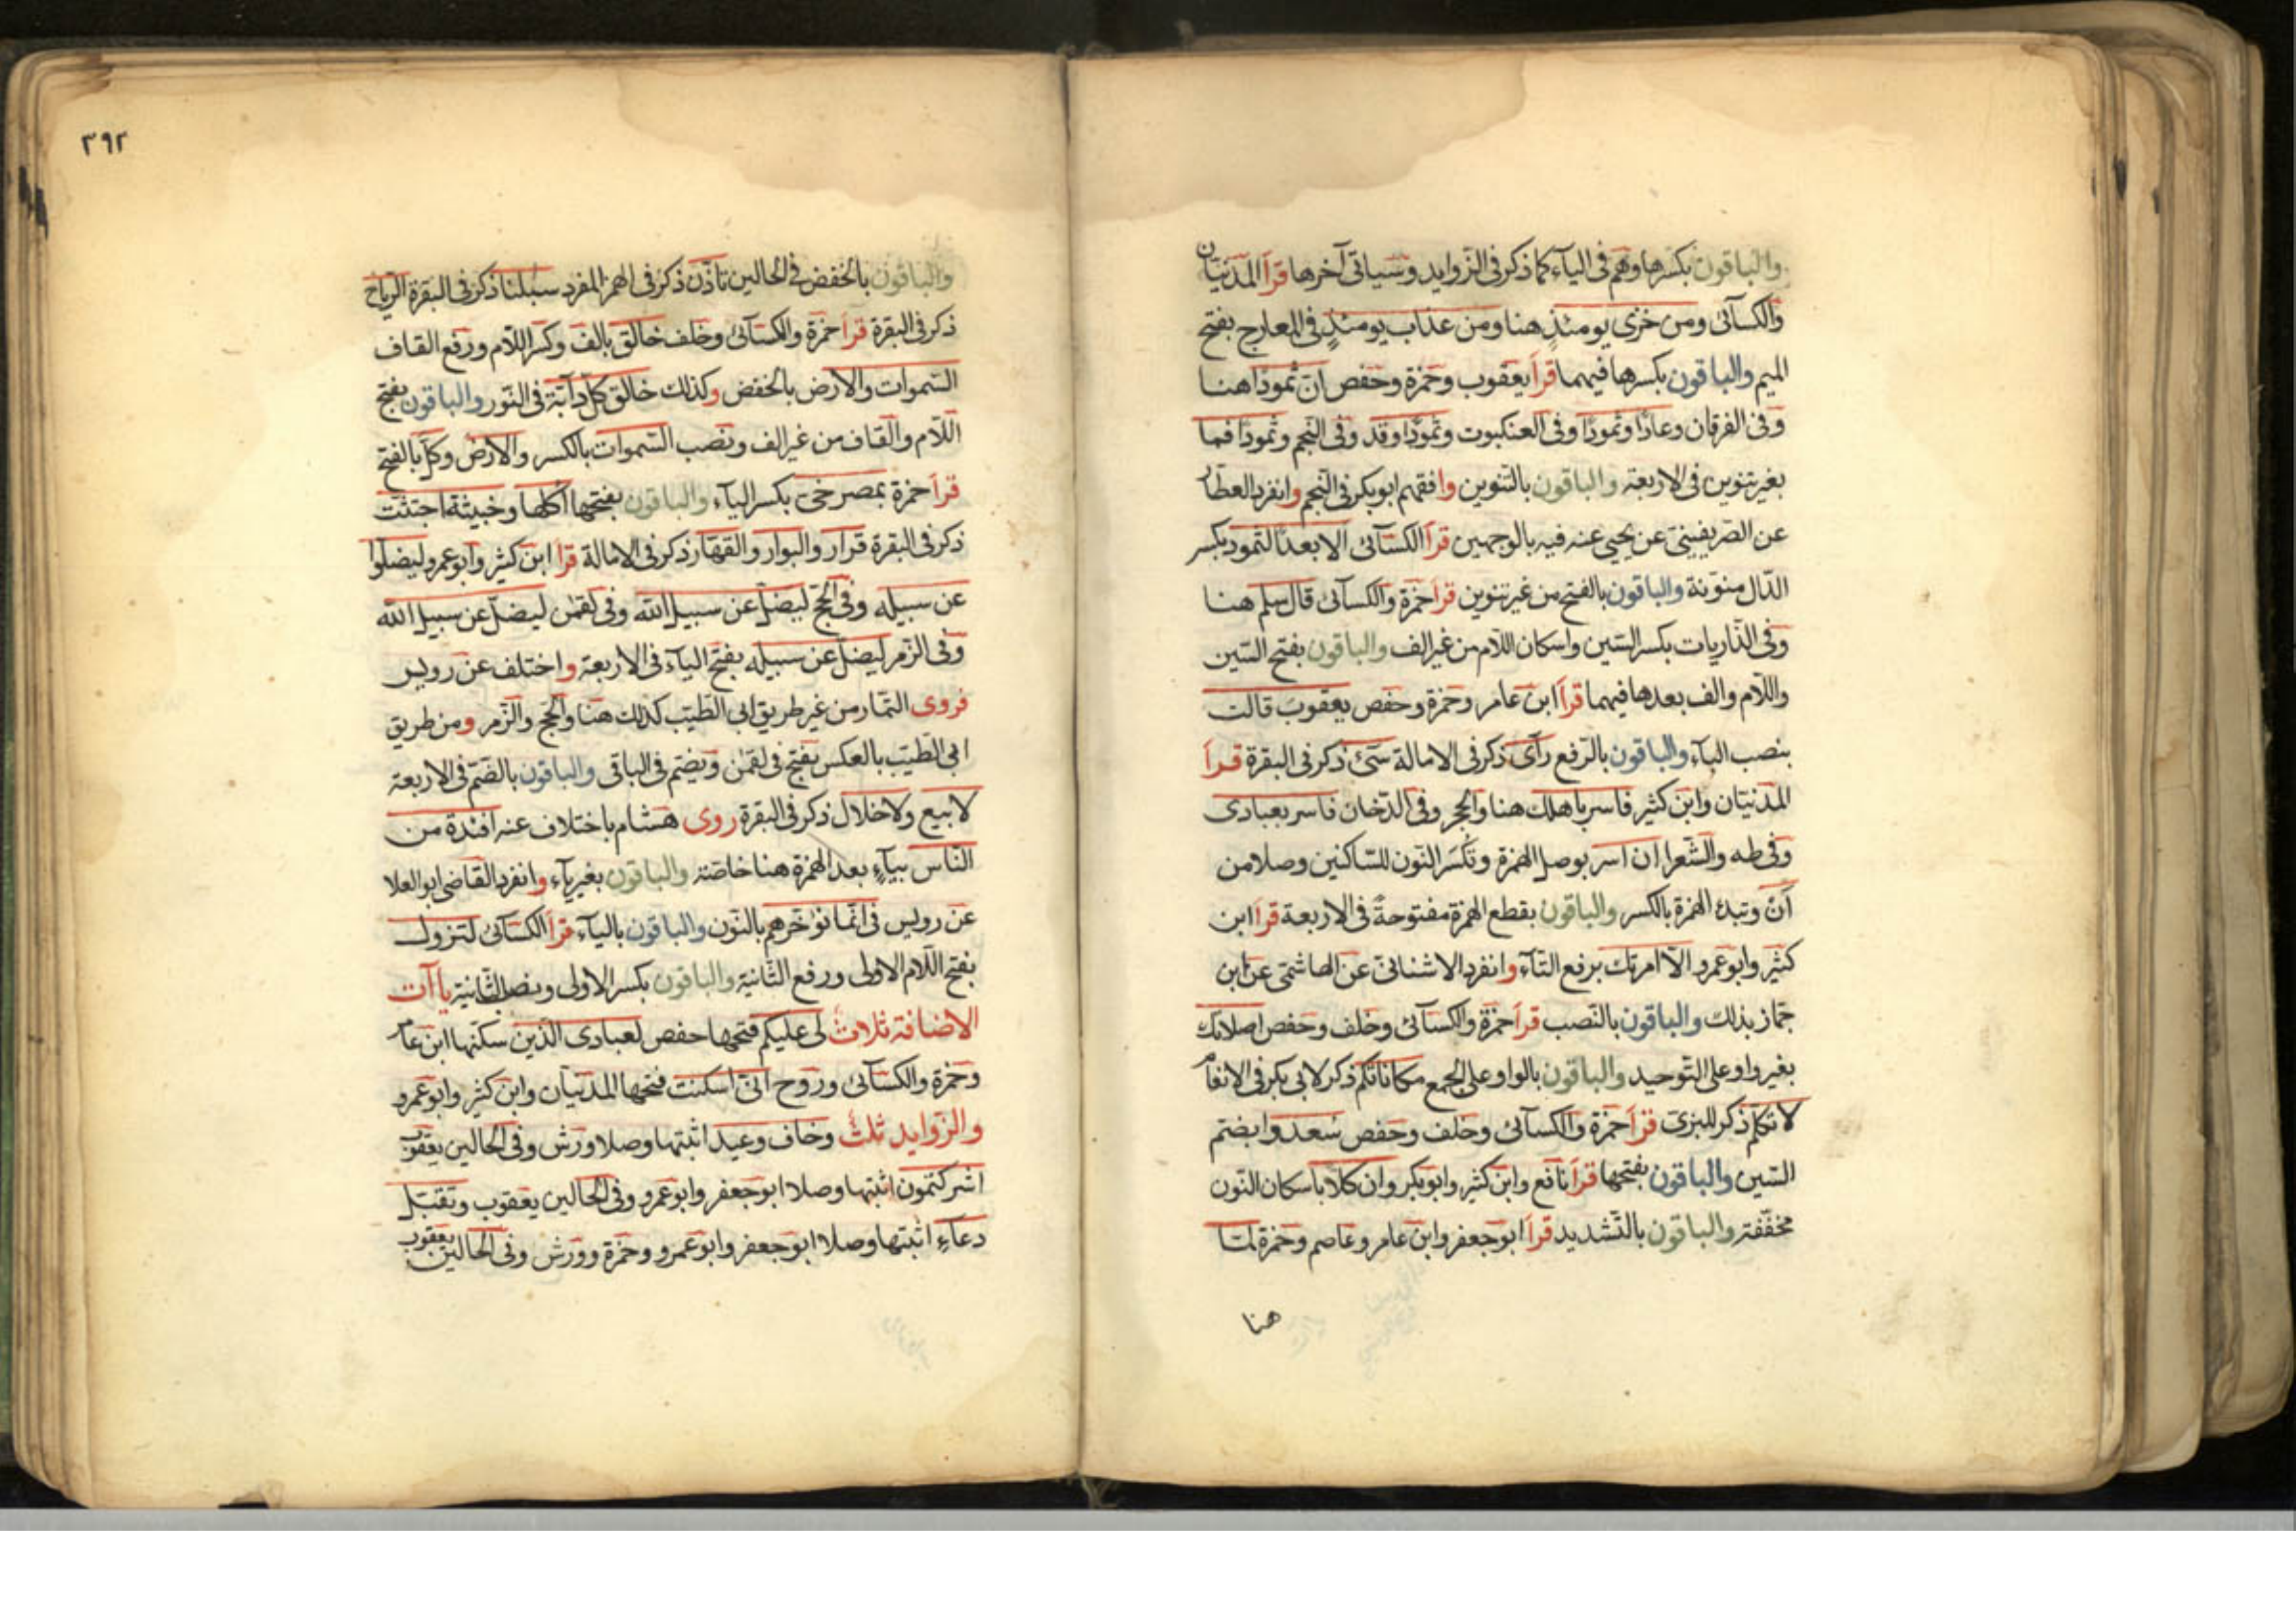 والباقون بكسرها وهم فى الياء كما ذكر فى الزوايد وسياتى آخرها قرأ المدنيان
والكسآئى ومن خزى يومئذٍ هنا ومن عذاب يومئذٍ فى المعارج بفتح
الميم والباقون بكسرها فيهما قرأ يعقوب وحمزة وحفص انّ ثمودا هنا
وفى الفرقان وعادًا وثمودًا وفى العنكبوت وثمودًا وقد وفى النجم وثمودا فما
بغير تنوين فى الاربعة والباقون بالتنوين وافقهم ابوبكر فى النجم وانفرد العطار
عن الصريفينى عن يحيى عنه فيه بالوجهين قرأ الكسآئى الا بعدًا لثمود بكسر
الدّال منوّنة والباقون بالفتح من غير تنوين قرأ حمزة والكسآئى قال سلم هنا
وفى الذاريات بكسر السّين واسكان اللام من غير الف والباقون بفتح السّين
واللّام والف بعدها فيهما قرأ ابن عامر وحمزة وحفص يعقوب قالت
بنصب الباء والباقون بالرّفع رآى ذكر فى الامالة سىء ذكر فى البقرة قرأ
المدنيّان وابن كثير فاسر باهلك هنا والحجر وفى الدّخان فاسر بعبادى
وفى طه والشّعرا ان اسر بوصل الهمزة وتكسر النّون للسّاكنين وصلا من
أن وتبدء الهمزة بالكسر والباقون بقطع الهمزة مفتوحةً فى الاربعة قرأ ابن
كثير وابوعمرو الّا امرتك برفع التآء وانفرد الاشنانىّ عن الهاشمىّ عن ابن
جمّاز بذلك والباقون بالنّصب قرأ حمزة والكسآئى وخلف وحفص اصلاتك
بغير واو على التّوحيد والباقون بالواو على الجمع مكاناتكم ذكر لابى بكر فى الانعام
لا تكلّم ذكر للبزى قرأ حمزة والكسآئى وخلف وحفص سُعدوا بضمّ
السّين والباقون بفتحها قرأ نافع وابن كثير وابوبكر وان كلّا باسكان النّون
مخفّفة والباقون بالتّشديد قرأ ابوجعفر وابن عامر وعاصم وحمزة لمّا
هنا
٣٩٢
والباقون بالخفض فى الحالين تاذّن ذكر فى الهمز المفرد سبلنا ذكر فى البقرة الرياح
ذكر فى البقرة قرأ حمزة والكسآئى وخلف خالق بالف وكسر اللّام ورفع القاف
السّموات والارض بالخفض وكذلك خالق كلّ دآبّة فى النّور والباقون بفتح
اللّام والقاف من غير الف ونصب السّموات بالكسر والارض وكلّ بالفتح
قرأ حمزة بمصرخىّ بكسر اليآء والباقون بفتحها اكلها وخبيثة اجتثّت
ذكر فى البقرة قرار والبوار والقهّار ذكر فى الامالة قرأ ابن كثير وابوعمرو ليضلّوا
عن سبيله وفى الحجّ ليضلّ عن سبيل الله وفى لقمن ليضلّ عن سبيل الله
وفى الزّمر ليضلّ عن سبيله بفتح اليآء فى الاربعة واختلف عن رويس
فروى التمّار من غير طريق ابى الطّيّب كذلك هنا والحجّ والزّمر ومن طريق
ابى الطّيّب بالعكس بفتح فى لقمن ويضمّ فى الباقى والباقون بالضّمّ فى الاربعة
لا بيع ولا خلال ذكر فى البقرة روى هشام باختلاف عنه افئدة من
النّاس بيآء بعد الهمزة هنا خاصّة والباقون بغير يآء وانفرد القاضى ابوالعلا
عن رويس فى انّما نؤخّرهم بالنّون والباقون باليآء قرأ الكسآئى لتزول
بفتح اللّام الاولى ورفع الثّانية والباقون بكسر الاولى ونصب الثّانية ياآت
الاضافة ثلاث لى عليكم فتحها حفص لعبادى الّذين سكنها ابن عامر
وحمزة والكسآئى وروح انّى اسكنت فتحها المدنيّان وابن كثير وابوعمرو
والزّوايد ثلث وخاف وعيد اثبتها وصلا ورش وفى الحالين يعقوب
اشركتمون اثبتها وصلا ابوجعفر وابوعمرو وفى الحالين يعقوب وتقبّل
دعاء اثبتها وصلا ابوجعفر وابوعمرو وحمزة وورش وفى الحالين يعقوب